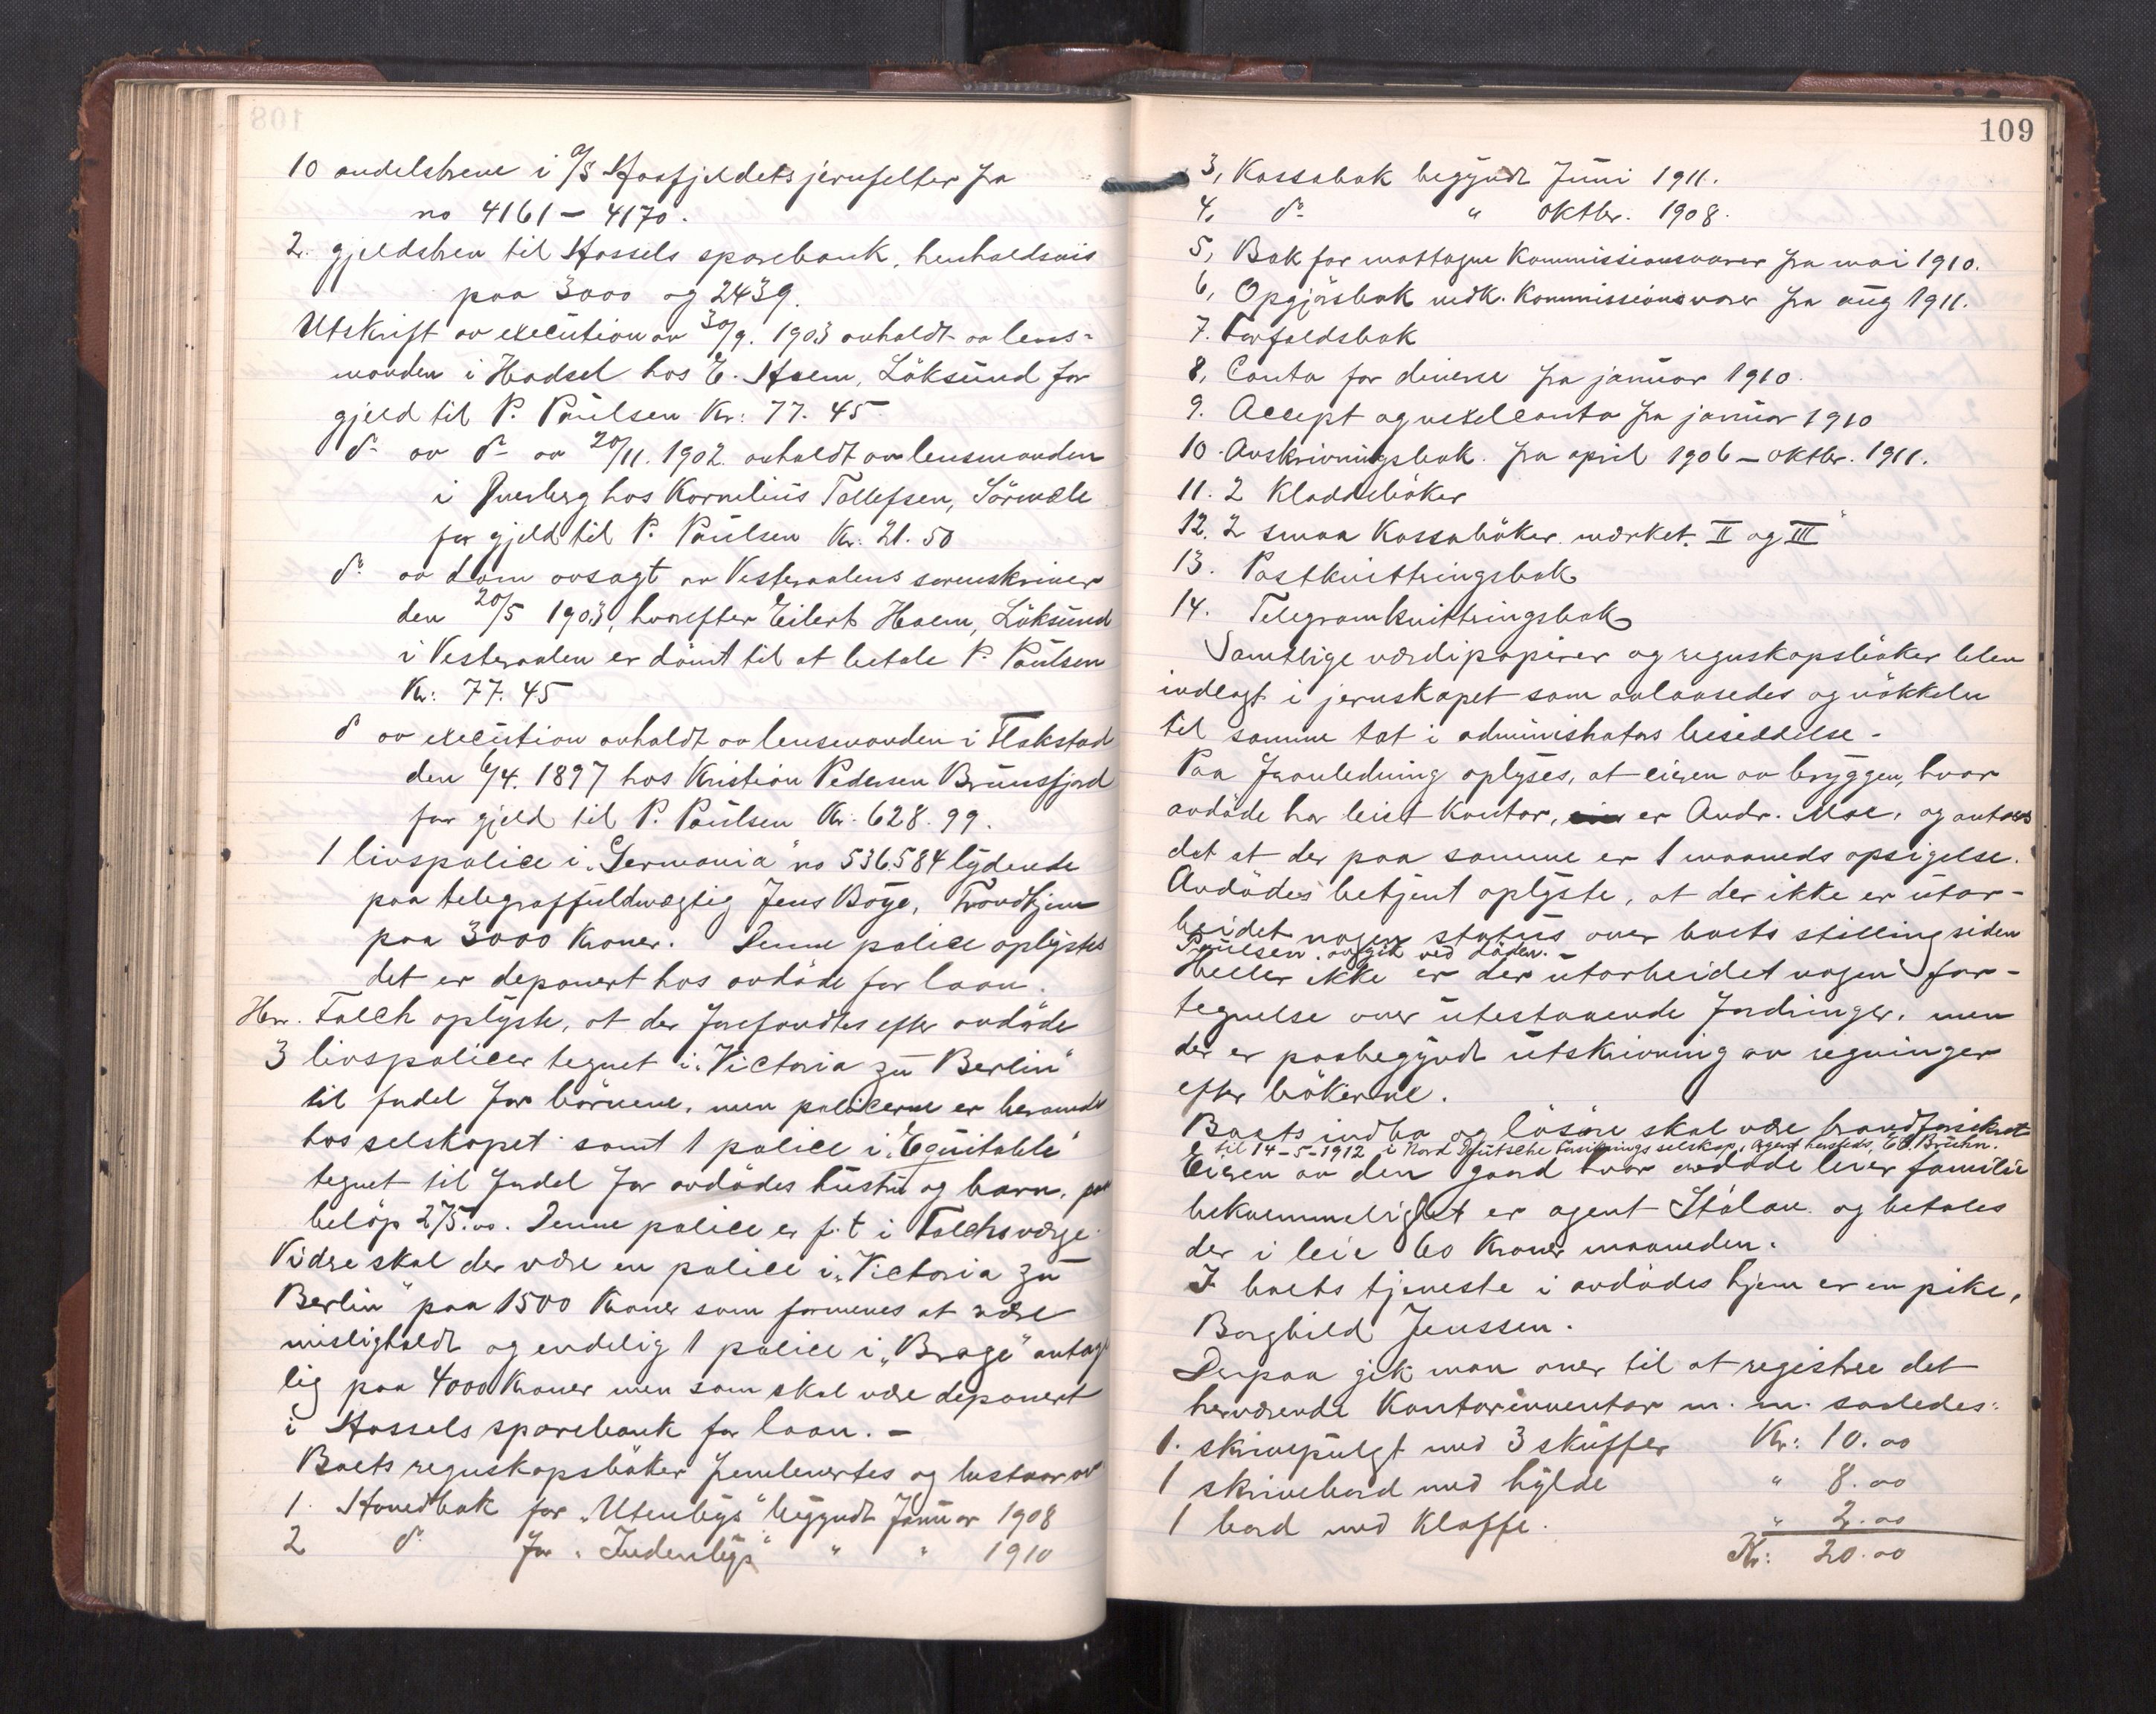 10 andelsbreve i A/S Haafjeldets jernfelter fra
no 4161 – 4170.
2. gjeldsbrev til Hassels sparebank, henholdsvis
paa 3000 og 2439.
Utskrift av execution av 30/9. 1903 avholdt av lens-
manden i Hadsel hos E. Haem, Löksund for
gjeld til P. Paulsen Kr: 77.45
do av do av 20/11. 1902. avholdt av lensmanden
i Buksnes hos Kornelius Tollefsen,
for gjeld til P. Paulsen Kr. 21.50
do av dom avsagt av Vesteraalens sorenskriver
den 20/5 1903, hvorefter Eilert Haem, Löksund
i Vesteraalen er dömt til at betale P. Paulsen
Kr: 77.45
do av execution avholdt av lensmanden i Flakstad
den 6/4. 1897 hos Kristian Pedersen Brunsfjord
for gjeld til P. Paulsen Kr. 628.99.
1 livspolice i „Germania" no 536584 lydende
paa telegraffuldmægtig Jens Böye, Trondhjem
paa 3000 Kroner. Denne police oplystes
det er deponert hos avdöde for laan.
Hr. Falch oplyste, at der forefandtes efter avdöde
3 livspolicer tegnet i „Victoria zu Berlin"
til fordel for börnene, men policerne er beroende
hos selskapet samt 1 police i „Equitable"
tegnet til fordel for avdödes hustru og barn, paa
belöp 275.00. Denne police er f.t i Falchs værge.
Vidre skal der være en police i „Victoria zu
Berlin" paa 1500 Kroner som formenes at være
misligholdt og endelig 1 police i „Brage" antage
lig paa 4000 Kroner men som skal være deponert
i Hassels sparebank for laan. –
Boets regnskapsböker fremlevertes og bestaar av
1. Hovedbok for „Utenbys" begyndt Januar 1908
2 do for „Indenbys" " " 1910
109
3, Kassabok begyndt Juni 1911.
4. do " Oktbr. 1908.
5, Bok for mottagne Kommissionsvarer fra mai 1910.
6, Opgjörsbok vedk. Kommissionsvarer fra aug 1911.
7. Forfaldsbok
8, Conto for diverse fra januar 1910.
9. Accept og vexelconto fra januar 1910
10. Avskrivningsbok fra april 1906 – oktbr. 1911.
11. 2 Kladdeböker
12. 2 smaa Kassaböker mærket. II og III
13. Postkvitteringsbok
14. Telegramkvitteringsbok
Samtlige værdipapirer og regnskapsböker blev
indlagt i jernskapet som avlaasedes og nökkelen
til samme tat i administrators besiddelse –
Paa foranledning oplyses, at eieren av bryggen, hvor
avdöde har leiet kontor, er Andr. Moe, og antoges
det at der paa samme er 1 maaneds opsigelse.
Avdödes betjent oplyste, at der ikke er utar-
beidet nogen status over boets stilling siden
Paulsen avgik ved döden. –
Heller ikke er der utarbeidet nogen for-
tegnelse over utestaaende fordringer, men
der er paabegyndt utskrivning av regninger
efter bökerne.
Boets indbo og lösöre skal være brandforsikret
til 14-5-1912 i Nord Deutsche forsikringsselskap, Agent hersteds, Ed. Bruhn.
Eieren av den gaard hvor avdöde leier familie
bekvemmelighet er agent Stölan og betales
der i leie 60 Kroner maaneden.
I boets tjeneste i avdödes hjem er en pike,
Borghild Jenssen.
Derpaa gik man over til at registrere det
herværende Kontorinventar m. m. saaledes:
1. skrivepulgt med 3 skuffer Kr: 10.00
1 skrivebord med hylde " 8.00
1 bord med Klaffe. " 2.00
Kr: 20.00